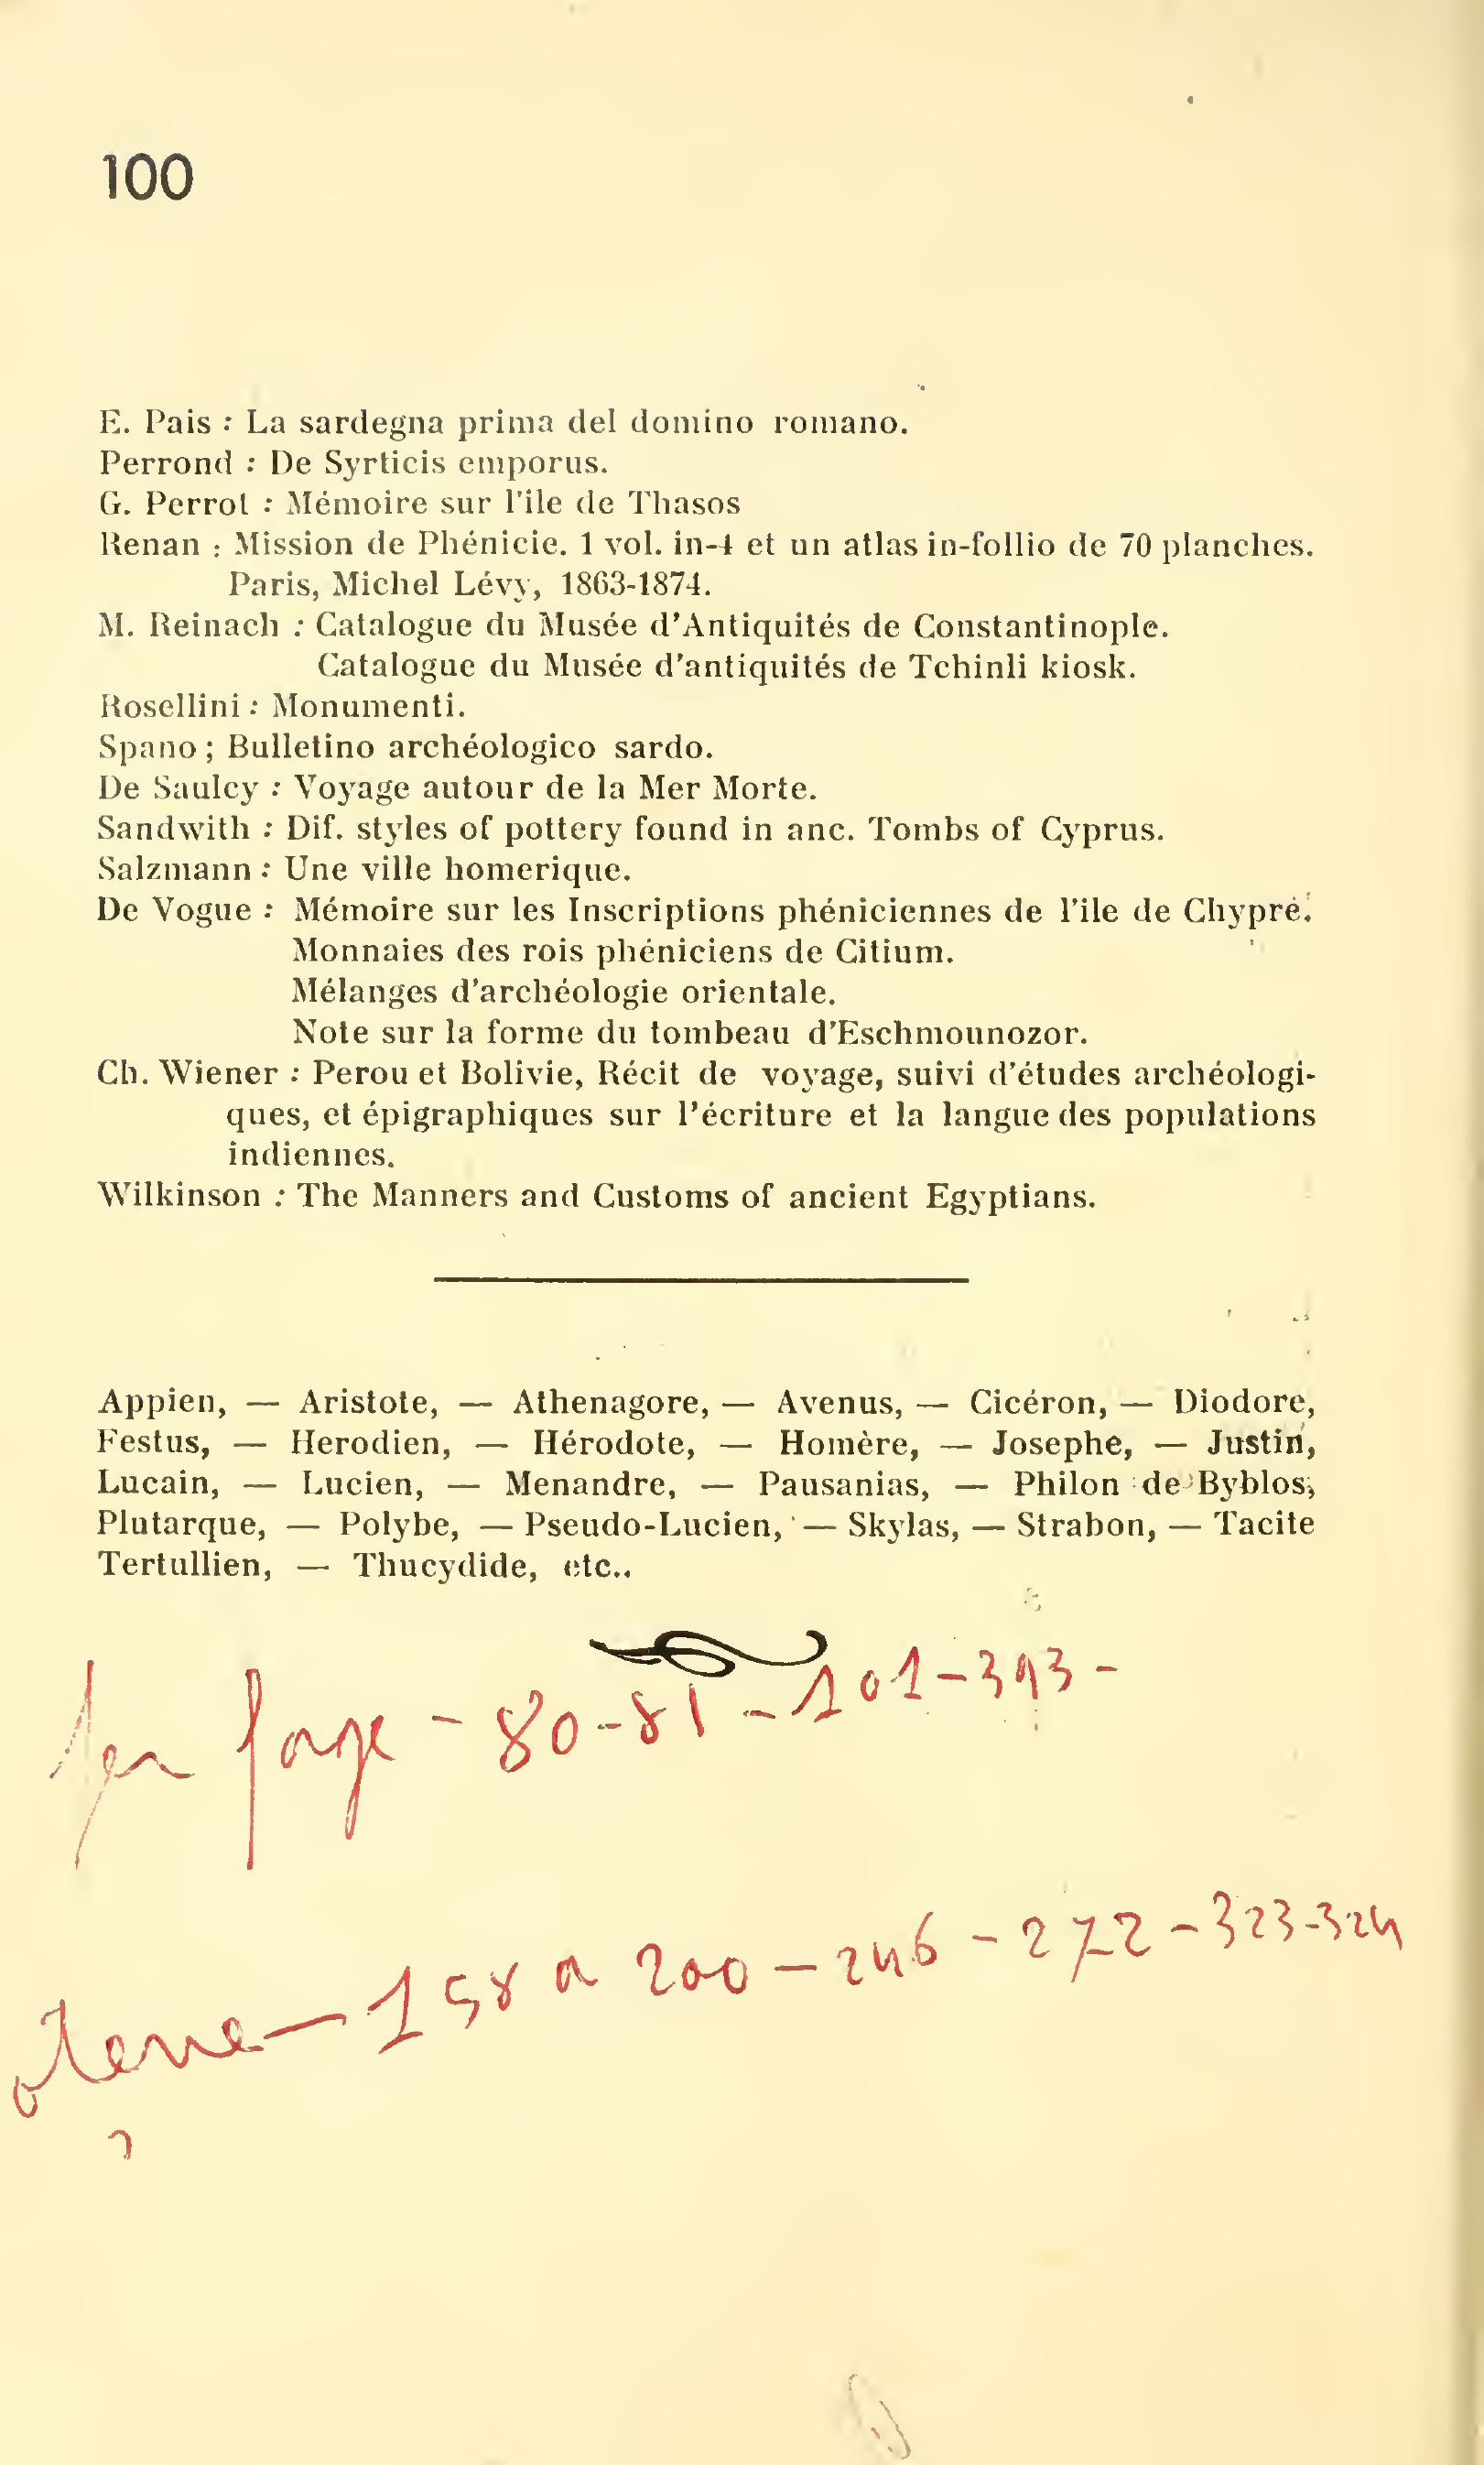 100
E. Pais : La sardegna prima del domino romano.
Perrond : De Syrticis emporus.
G. Perrot : Mémoire sur l'ile de Thasos
Renan : Mission de Phénicie. 1 vol. in-4 et un atlas in-follio de 70 planches.
Paris, Michel Lévy, 1863-1874.
M. Reinach : Catalogue du Musée d'Antiquités de Constantinople.
Catalogue du Musée d'antiquités de Tchinli kiosk.
Rosellini : Monumenti.
Spano ; Bulletino archéologico sardo.
De Saulcy : Voyage autour de la Mer Morte.
Sandwith : Dif. styles of pottery found in anc. Tombs of Cyprus.
Salzmann : Une ville homerique.
De Vogue : Mémoire sur les Inscriptions phéniciennes de l'ile de Chypre.
Monnaies des rois phéniciens de Citium.
Mélanges d'archéologie orientale.
Note sur la forme du tombeau d'Eschmounozor.
Ch. Wiener : Perou et Bolivie, Récit de voyage, suivi d'études archéologi-
ques, et épigraphiques sur l'écriture et la langue des populations
indiennes.
Wilkinson : The Manners and Customs of ancient Egyptians.
Appien, — Aristote, — Athenagore, — Avenus, — Cicéron, — Diodore,
Festus, — Herodien, — Hérodote, — Homère, — Josephe, — Justin,
Lucain, — Lucien, — Menandre, — Pausanias, — Philon de Byblos,
Plutarque, — Polybe, — Pseudo-Lucien, — Skylas, — Strabon, — Tacite
Tertullien, — Thucydide, etc..
page - 80-81-101-393-
158 a 200-246-272-323-324